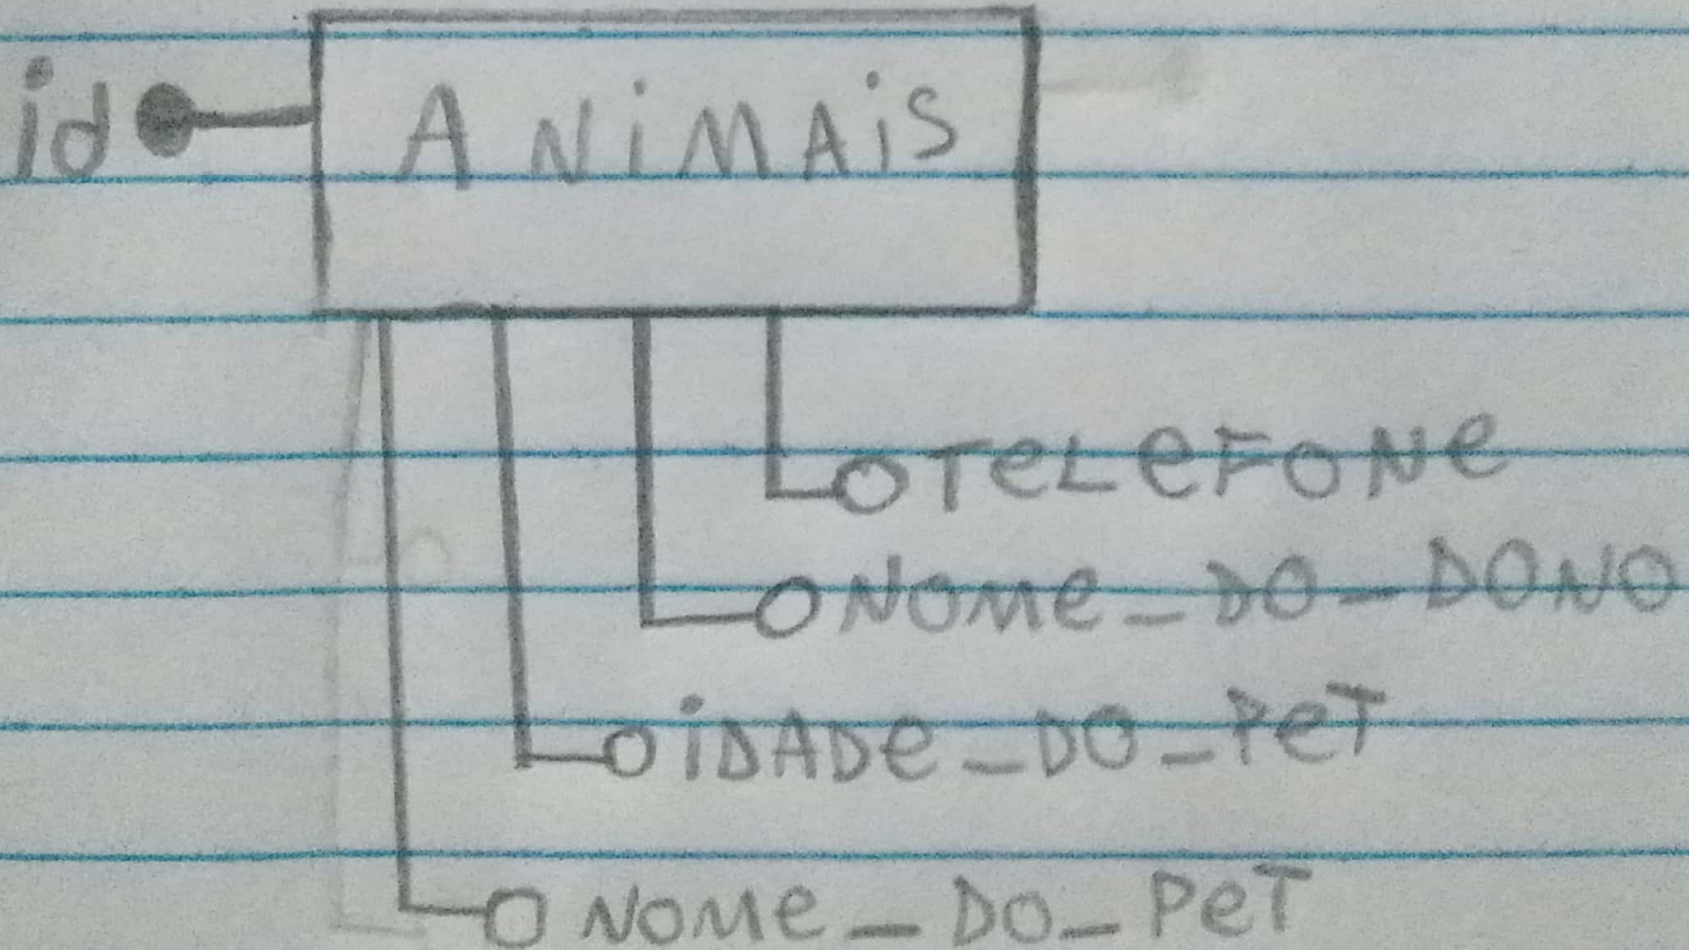 id ANiMAiS
TeLeFONe
NOMe_DO_DONO
iDADe_DO_PeT
NOMe_DO_PeT